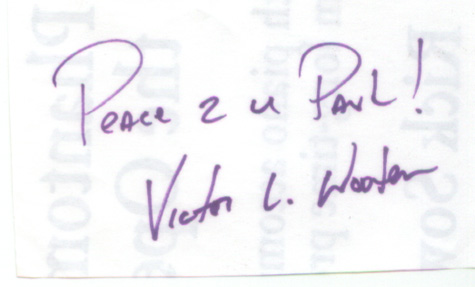 Peace 2 u Paul!
Victor L. Wooten